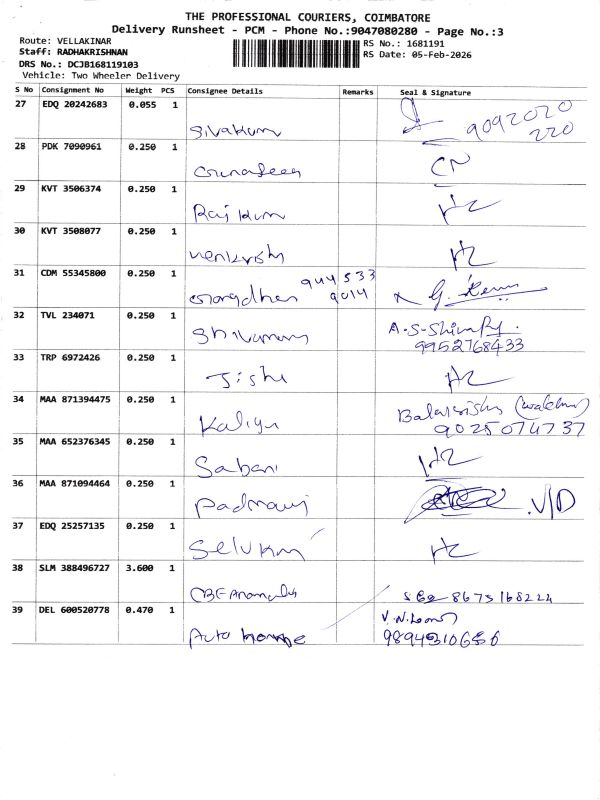 THE PROFESSIONAL COURIERS, COIMBATORE
Delivery Runsheet - PCM - Phone No.:9047080280 - Page No.:3
Route: VELLAKINAR
RS No.: 1681191
Staff: RADHAKRISHNAN
RS Date: 05-Feb-2026
DRS No.: DCJB168119103
Vehicle: Two Wheeler Delivery
S No Consignment No Weight PCS Consignee Details Remarks Seal & Signature
27 EDQ 20242683 0.055 1
Sivakum 9092020
220
28 PDK 7090961 0.250 1
CN
29 KVT 3506374 0.250 1
Raj Kum HZ
30 KVT 3508077 0.250 1
Venkrish HZ
31 CDM 55345800 0.250 1
944533
9014
32 TVL 234071 0.250 1
A.S-Shiva
9952768433
33 TRP 6972426 0.250 1
Jishe HZ
34 MAA 871394475 0.250 1
Kaliyu
9025074737
35 MAA 652376345 0.250 1
Sabani HZ
36 MAA 871094464 0.250 1
V/D
37 EDQ 25257135 0.250 1
Selvkm HZ
38 SLM 388496727 3.600 1
8675168224
39 DEL 600520778 0.470 1
Auto